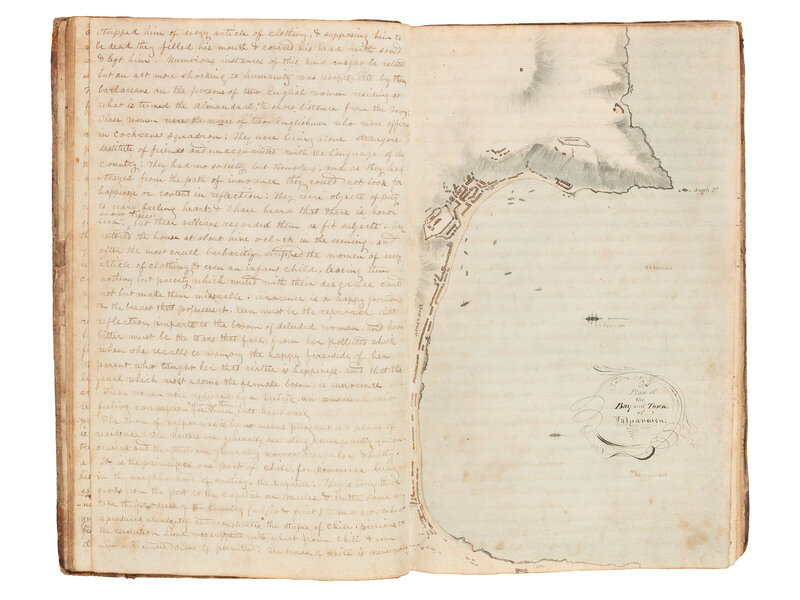 stripped him of every article of clothing, & supposing him to
be dead they filled his mouth & covered his head with sand
& left him. Numerous instances of this kind might be related
but an act more shocking to humanity was perpetrated by these
barbarians on the persons of two English women residing at
what is termed the Almandral, a short distance from the Town
These women were the wives of two Englishmen who were officers
in Cochranes Squadron; They were living alone, strangers
destitute of friends and unacquainted with the language of the
country; They had no society but themselves, and as they had
strayed from the path of innocence they could not look for
happiness or content in reflection; they were objects of pity
to every feeling heart, & I have heard that there is honor
but these villians regarded them as fit subjects. They
entered the house at about nine o clock in the evening, and
after the most cruel barbarity stripped the women of every
article of clothing, & even an infant child, leaving them
nothing but poverty which united with their disgrace could
not but make them miserable. innocence is a happy
to the breast that possesses it. Keen must be the reproach that
reflection imparts to the bosom of deluded woman. and how
bitter must be the tears that fall from her polluted cheek
when she recalls to memory the happy fireside of her
parent who taught her that virtue is happiness and that the
jewel which most adorns the female bosom is innocence
These women were received by a an american who
feeling compassion for them, into his house.
The Town of Valparaiso is by no means a pleasant residence
The houses are generally one story
and the streets are generally narrow irregular & filthy.
It is the principal sea port of Chili for commerce being
in the neighbourhood of Santiago the Capital. They carry their
goods from the port to the Capital on mules & in the same way
take the produce of the Country to market. wheat
is produced and constitutes the staple of Chili.
the revolution Lima was supplied with wheat from Chili & even
now a is permitted. The trade of Chili is
Angels Pt.
Plan of
the
Bay and Town
of
Valparaiso.